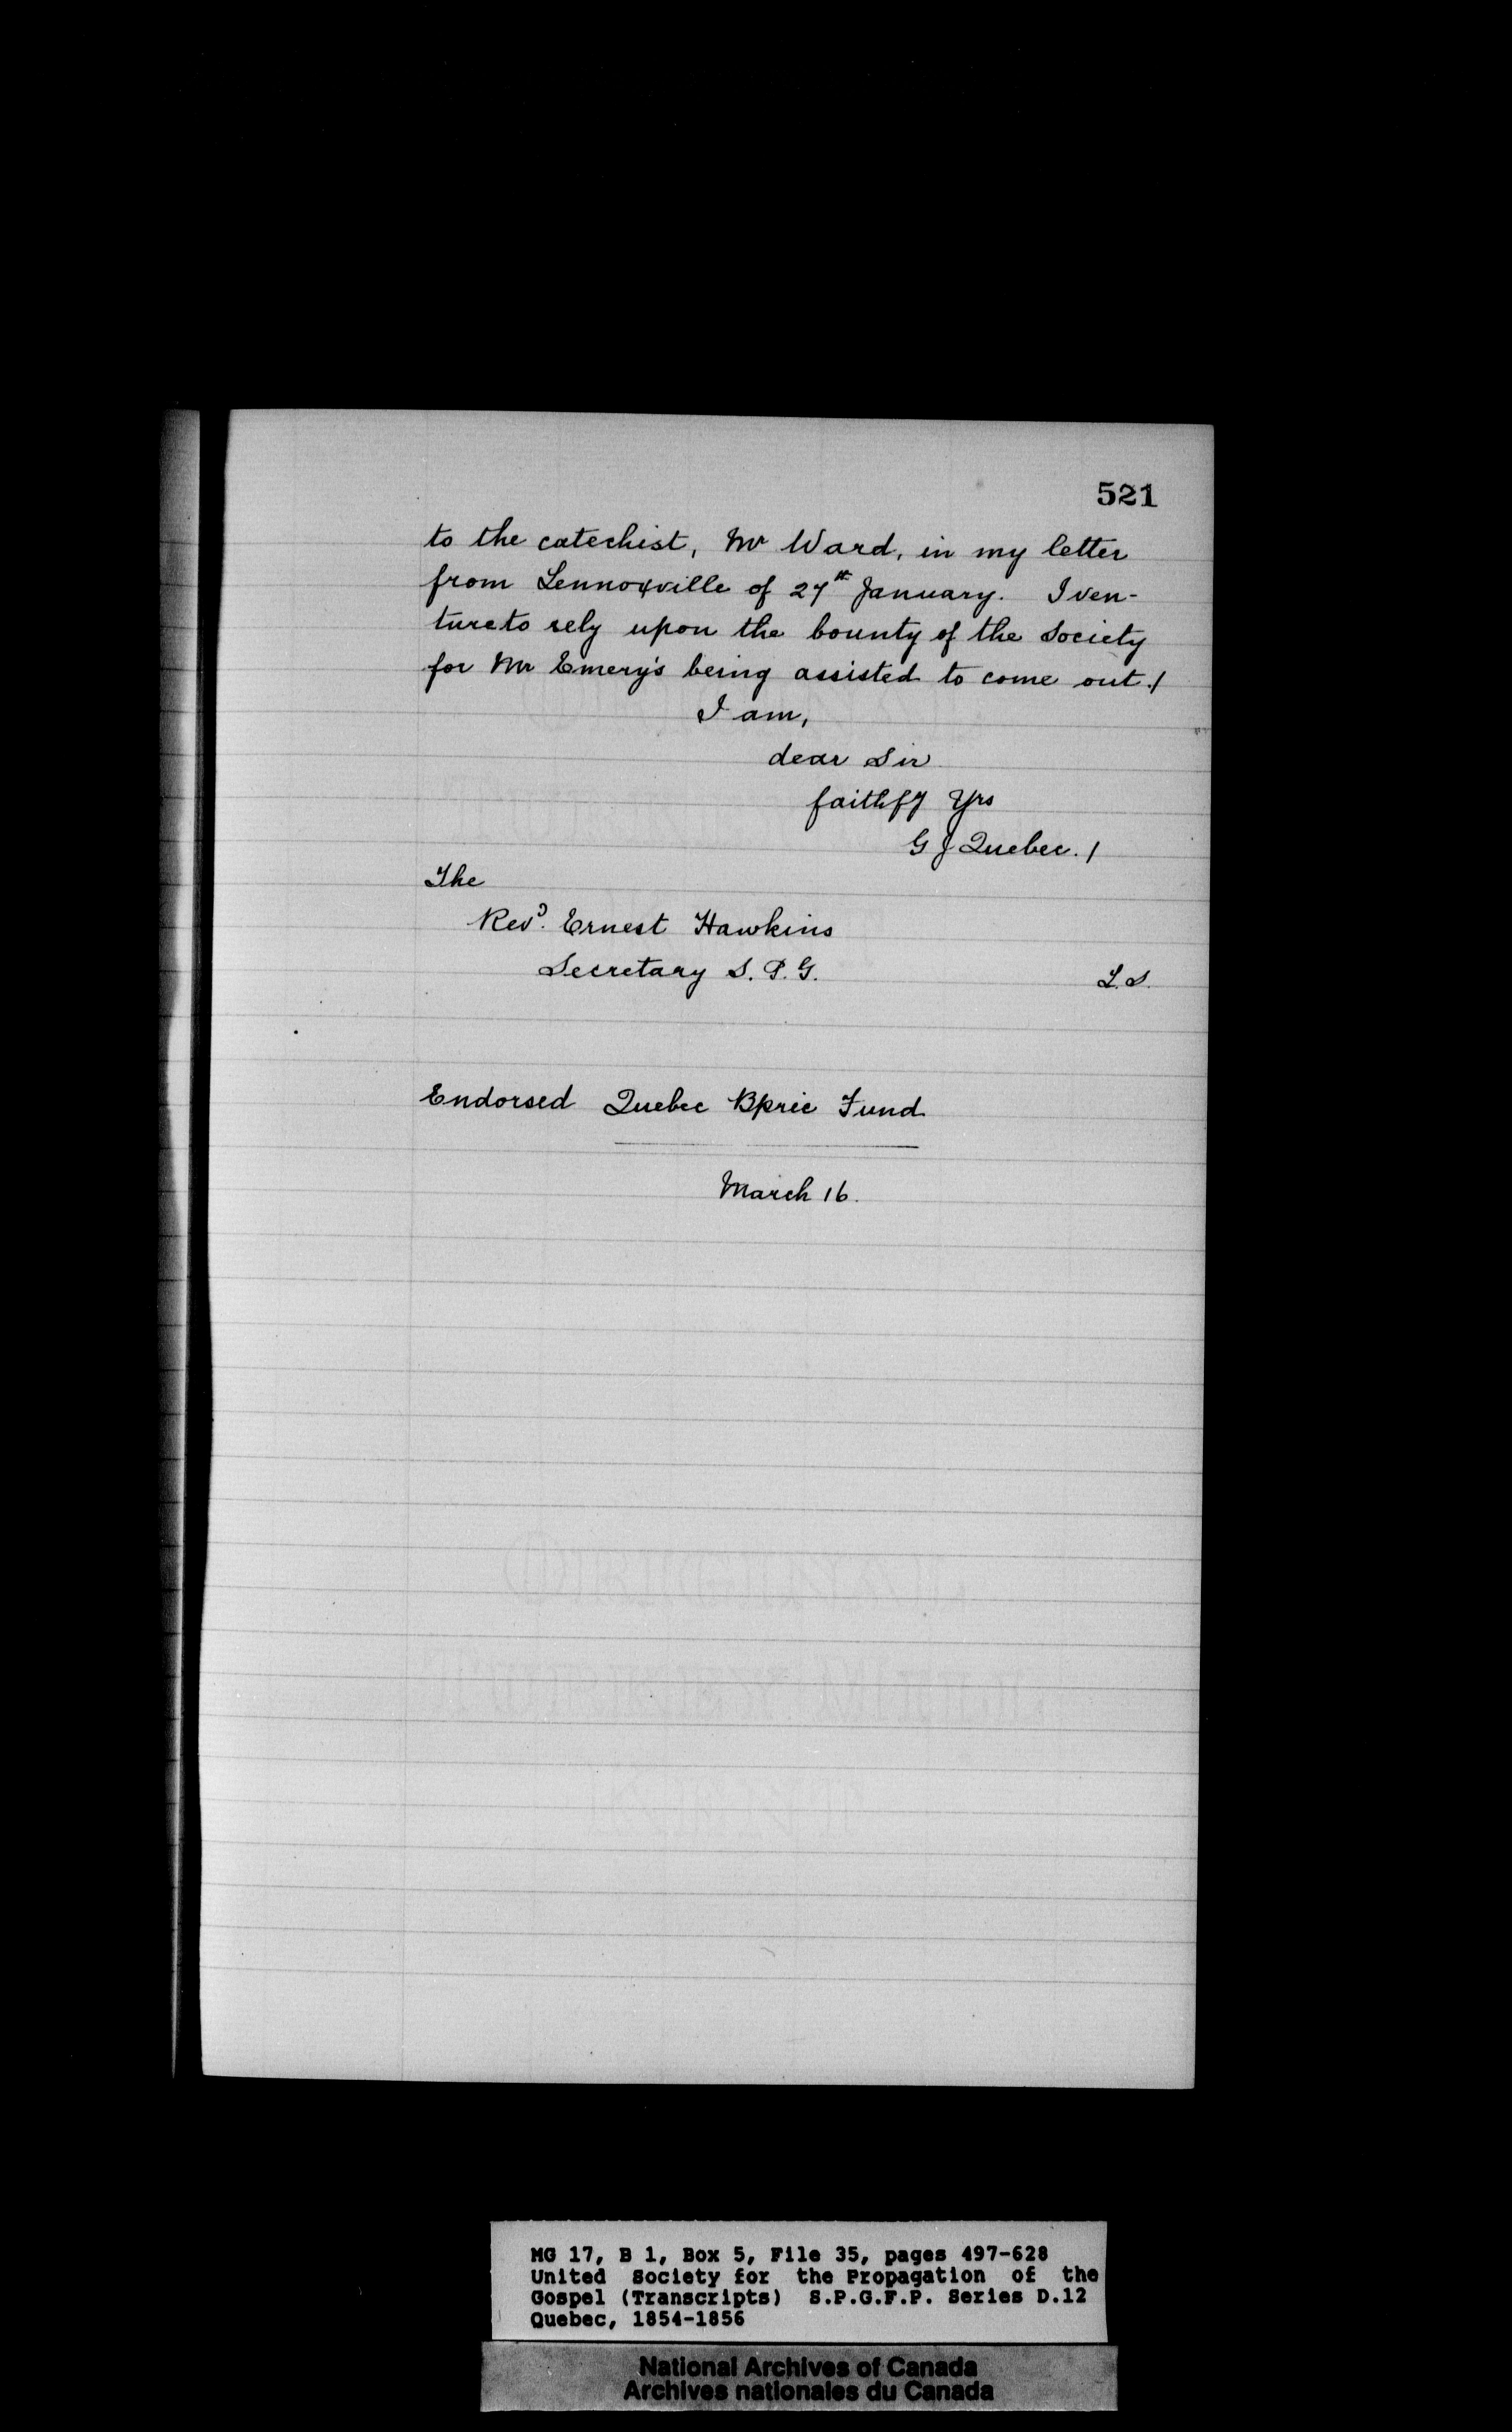 521
to the catechist, Mr Ward, in my letter
from Lennoxville of 27th January. I ven-
ture to rely upon the bounty of the Society
for Mr Emery's being assisted to come out./
I am,
dear Sir
faithfy Yrs
G J Quebec./
The
Revd. Ernest Hawkins
Secretary S. P. G.
L.S.
Endorsed Quebec Bpric Fund
March 16.
MG 17, B 1, Box 5, File 35, pages 497-628
United Society for the Propagation of the
Gospel (Transcripts) S.P.G.F.P. Series D.12
Quebec, 1854-1856
National Archives of Canada
Archives nationales du Canada